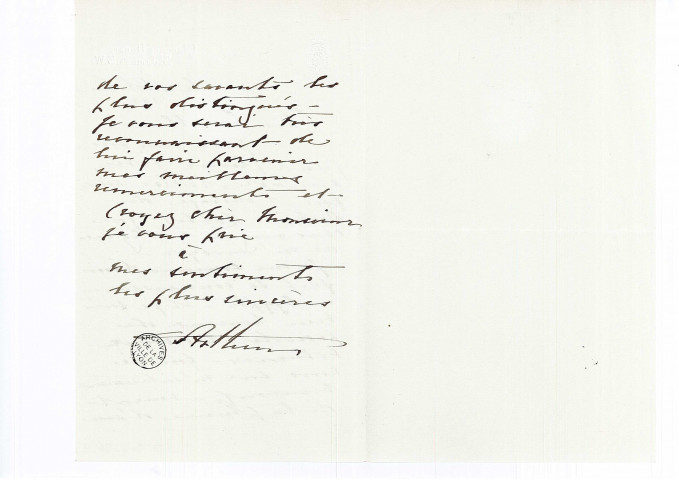 de vos savants les
plus distingués –
Je vous serai très
reconnaissant de
lui faire parvenir
mes meilleurs
remerciements et
Croyez cher Monsieur
je vous prie
à
mes sentiments
les plus sincères
Arthur
ARCHIVES
DE LA
VILLE DE
LYON